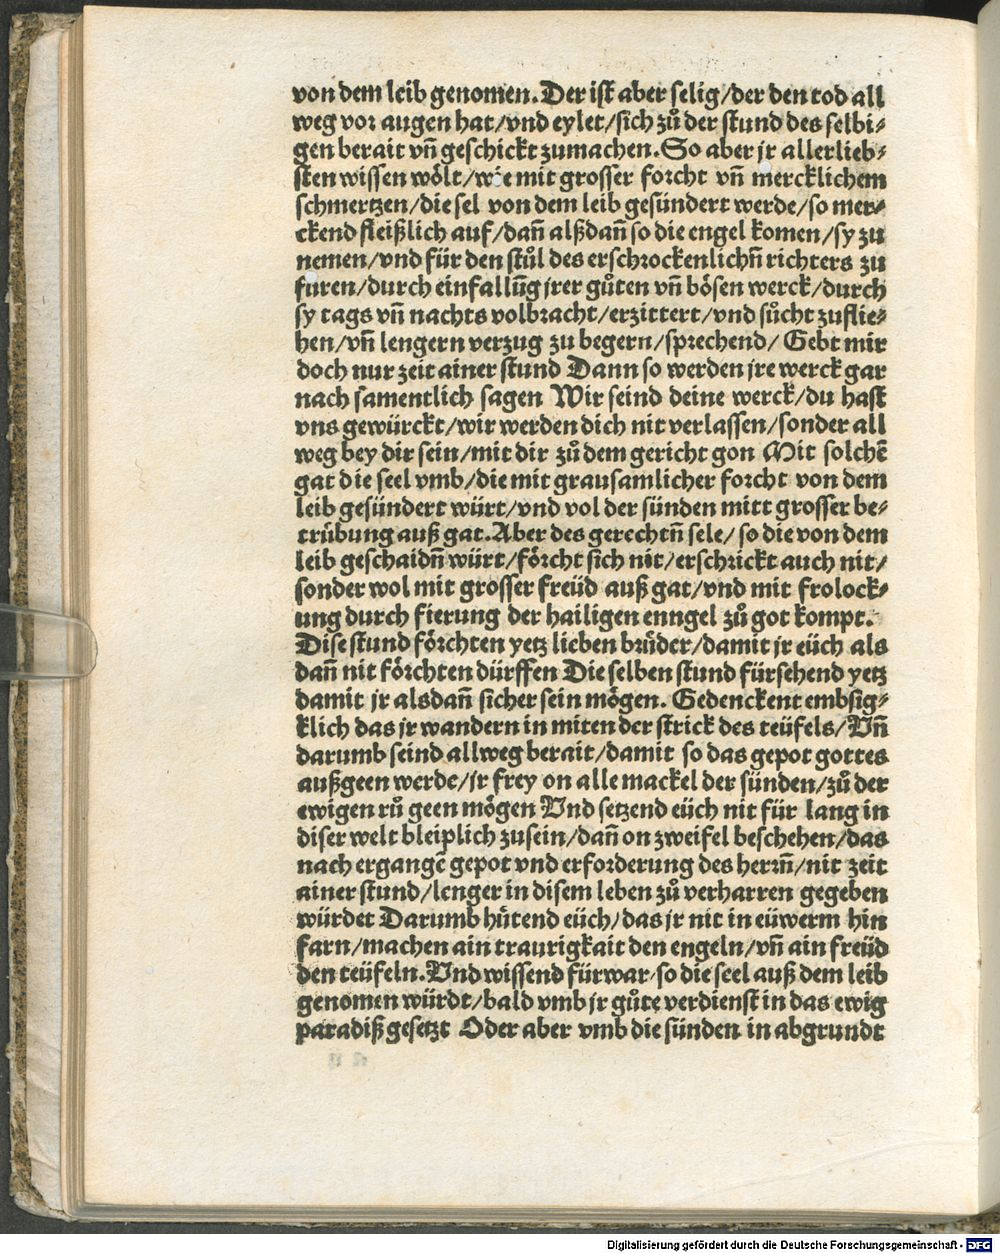 von dem leib genomen. Der ist aber selig/der den tod all
weg vor augen hat/vnd eylet/sich zů der stund des selbi-
gen berait vñ geschickt zumachen. So aber jr allerlieb-
sten wissen wölt/wie mit grosser forcht vñ mercklichem
schmertzen/die sel von dem leib gesündert werde/so mer-
ckend fleißlich auf/dañ alßdañ so die engel komen/sy zu
nemen/vnd für den stůl des erschrockenlichñ richters zu
furen/durch einfallũg jrer gůten vñ bösen werck/durch
sy tags vñ nachts volbracht/erzittert/vnd sůcht zuflie-
hen/vñ lengern verzug zu begern/sprechend/ Gebt mir
doch nur zeit ainer stund Dann so werden jre werck gar
nach samentlich sagen Wir seind deine werck/du hast
vns gewürckt/wir werden dich nit verlassen/sonder all
weg bey dir sein/mit dir zů dem gericht gon Mit solchẽ
gat die seel vmb/die mit grausamlicher forcht von dem
leib gesündert würt/vnd vol der sünden mitt grosser be-
trübung auß gat. Aber des gerechtñ sele/ so die von dem
leib geschaidñ würt/förcht sich nit/erschrickt auch nit/
sonder wol mit grosser freüd auß gat/vnd mit frolock-
ung durch fierung der hailigen enngel zů got kompt.
Dise stund förchten yetz lieben brüder/damit jr eüch als
dañ nit förchten dürffen Die selben stund fürsehend yetz
damit jr alsdañ sicher sein mögen. Gedenckent embsig-
klich das jr wandern in miten der strick des teüfels/Vñ
darumb seind allweg berait/damit so das gepot gottes
außgeen werde/jr frey on alle mackel der sünden/zů der
ewigen rů geen mögen Vnd setzend eüch nit für lang in
diser welt bleiplich zusein/dañ on zweifel beschehen/das
nach ergangẽ gepot vnd erforderung des herrñ/nit zeit
ainer stund/lenger in disem leben zů verharren gegeben
würdet Darumb hütend eüch/das jr nit in eüwerm hin
farn/machen ain traurigkait den engeln/vñ ain freüd
den teüfeln. Vnd wissend fürwar/so die seel auß dem leib
genomen würdt/bald vmb jr gůte verdienst in das ewig
paradiß gesetzt Oder aber vmb die sünden in abgrundt
Digitalisierung gefördert durch die Deutsche Forschungsgemeinschaft - DFG